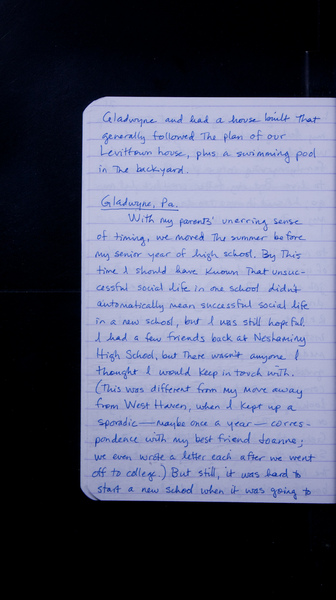 Gladwyne and had a house built that
generally followed the plan of our
Levittown house, plus a swimming pool
in the backyard.
Gladwyne, Pa.
With my parents' unerring sense
of timing, we moved the summer before
my senior year of high school. By this
time I should have known that unsuc-
cessful social life in one school didn't
automatically mean successful social life
in a new school, but I was still hopeful.
I had a few friends back at Neshaminy
High School, but there wasn't anyone I
thought I would keep in touch with.
(This was different from my move away
from West Haven, when I kept up a
sporadic — maybe once a year — corres-
pondence with my best friend Joanne;
we even wrote a letter each after we went
off to college.) But still, it was hard to
start a new school when it was going to